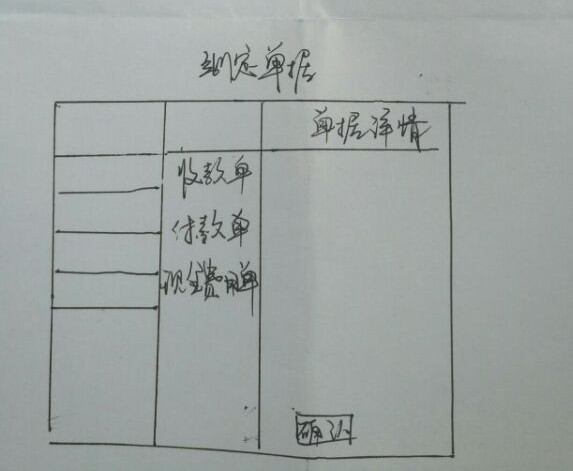 绑定单据
单据详情
收款单
付款单
现金费用单
确认